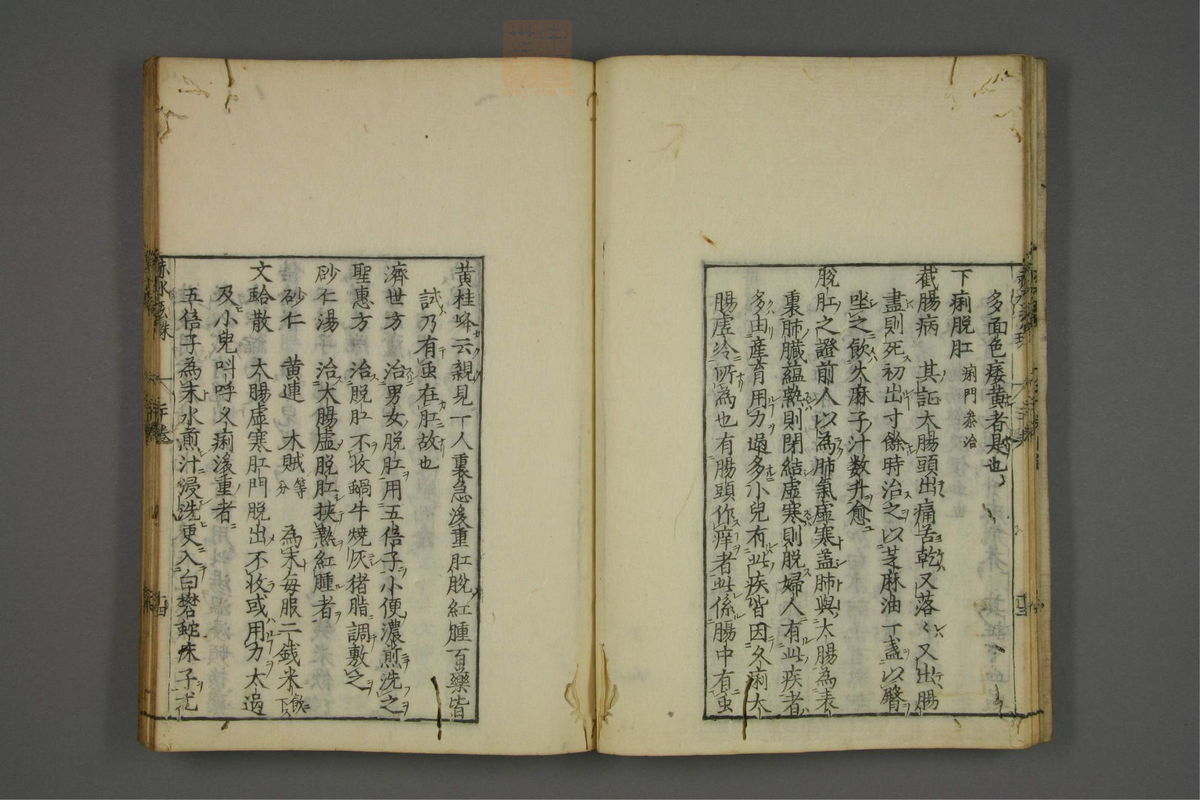 多面色痿黄者是也
下痢脱肛 痢門叅治
截腸病 其証大腸頭出痛舌乾又落〱又出腸
盡則死初出寸餘時治之以芝麻油一盞以臀
坐之飲久麻子汁数升愈
脱肛之證前人以為肺氣虚寒盖肺與大腸為表
裏肺臓蘊熱則閉結虚寒則脱婦人有此疾者
多由産育用力過多小兒有此疾皆因久痢大
腸虚冷所為也有腸頭作痒者此係腸中有虫
黄桂峰云親見一人裏急後重肛脱紅腫百藥皆
試乃有虫在肛故也
濟世方 治男女脱肛用五倍子小便濃煎洗之
聖惠方 治脱肛不收蝸牛燒灰猪脂調敷之
砂仁湯 治大腸虚脱肛挾熱紅腫者
砂仁 黄連 木賊等分 為末毎服二銭米飲下
文蛤散 大腸虚寒肛門脱出不收或用力太過
及小兒叫呼久痢後重者
五倍子為末水煎汁浸洗更入白礬蛇床子尤